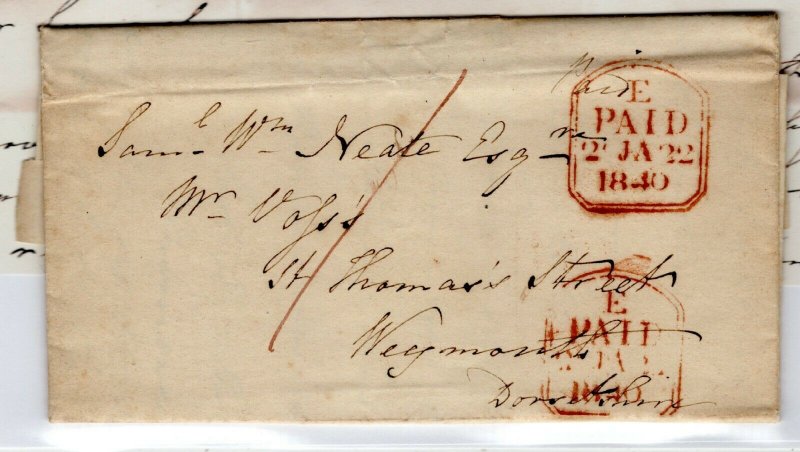 Paid
Saml Wm Neate Esqre
Mr Voss's
St Thomas's Street
Weymouth
Dorsetshire
E
PAID
2 JA 22
1840
E
PAID
JA
1840